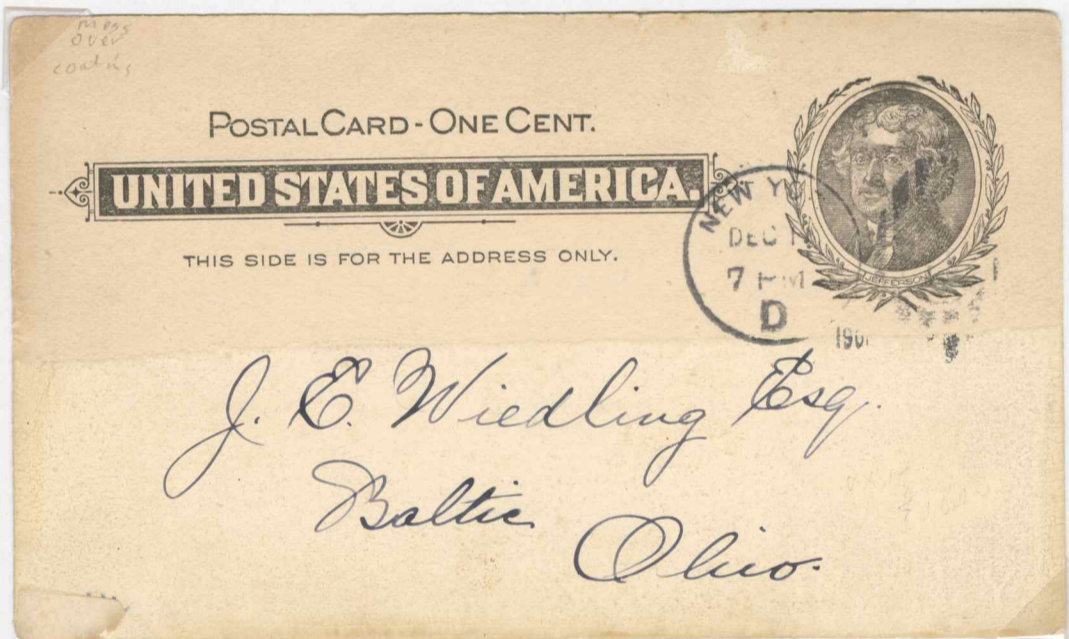 mess
over
coating
POSTAL CARD - ONE CENT.
UNITED STATES OF AMERICA.
THIS SIDE IS FOR THE ADDRESS ONLY.
JEFFERSON
NEW Y
DEC 1
7 PM
D
190
J. E. Wiedling Esq.
Baltic
Ohio.